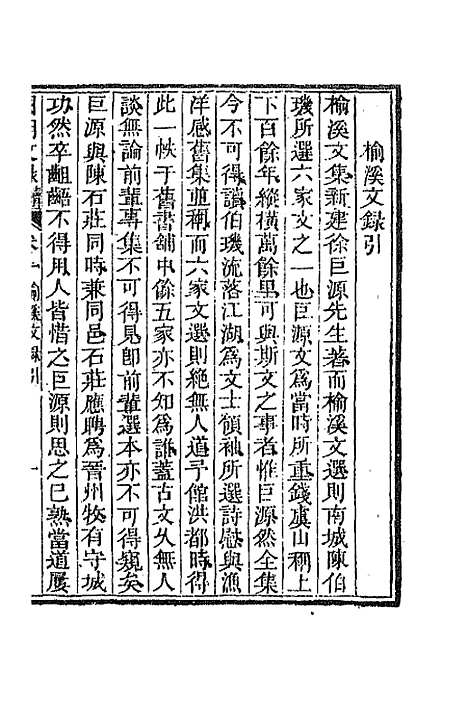 榆溪文録引
榆溪文集新建徐巨源先生著而榆溪文選則南城陳伯
璣所選六家文之一也巨源文爲當時所重錢虞山稱上
下百餘年縱橫萬餘里可與斯文之事者惟巨源然全集
今不可得讀伯璣流落江湖爲文士領袖所選詩慰與漁
洋感舊集並稱而六家文選則絶無人道予館洪都時得
此一帙于舊書舖中餘五家亦不知爲誰蓋古文久無人
談無論前輩專集不可得見即前輩選本亦不可得窺矣
巨源與陳石莊同時兼同邑石莊應聘爲晉州牧有守城
功然卒齟齬不得用人皆惜之巨源則思之已熟當道屢
國朝文録續編 卷一 榆溪文録引 一